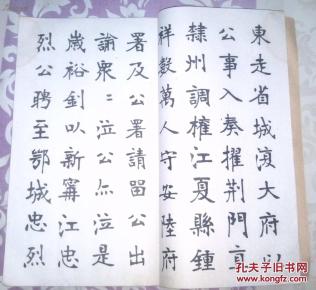 東走省城復大府以
公事入奏擢荆門直
隸州調權江夏縣鍾
祥數萬人守安陸府
署及公署請留公出
諭衆〻泣公亦泣是
嵗裕釗以新寗江忠
烈公聘至鄂城忠烈
孔夫子旧书网